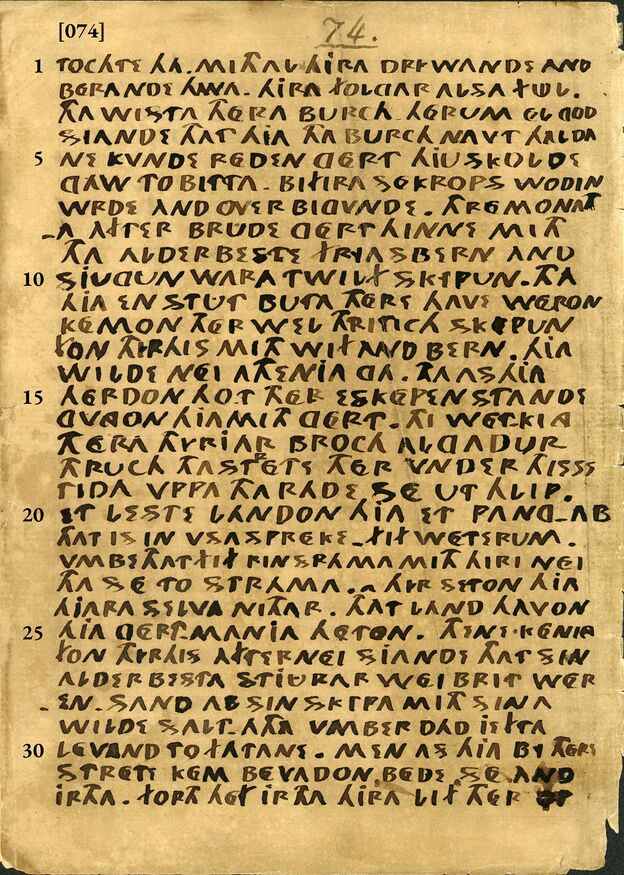 TOCHTE HA. MITH AL HIRA DRIWANDE AND
BERANDE HAWA. HIRA FOLGAR ALSA FUL.
THA WISTA THERA BURCH-HERUM EL GOD
SIANDE THAT HIA THA BURCH NAVT HALDA
NE KVNDE REDEN GERT HIU SKOLDE
GAW TO BITTA. BIFIRA SEKROPS WODIN
WRDE AND OVER BIGVNDE. THRE MONATH
-A AFTER BRUDE GERT HINNE MITH
THA ALDERBESTE FRYASBERN AND
SIUGUN WARA TWILF SKEPUN. THA
HIA EN STUT BUTA THERE HAVE WERON
KEMON THER WEL THRITICH SKEPUN
FON THYRHIS MITH WIF AND BERN. HIA
WILDE NEI ATHENIA GA. THA AS HIA
HERDON HOT THER ESKEPEN STANDE
GVNGON HIA MITH GERT. THI WETKING
THERA THYRIAR BROCH AL GADUR
THRUCH THA STRETE THER VNDER THISSE
TIDA VPPA THA RADE SE UT HLIP.
ET LESTE LANDON HIA ET PANG-AB
THAT IS IN VSA SPREKE. FIF WETERUM.
VMBE THAT FIF RINSTRAMA MITH HIRI NEI
THA SE TO STRAMA. HYR SETON HIA
HIARA SELVA NITHAR. THAT LAND HAVON
HIA GERTMANIA HETON. THENE KENING
FON THYRHIS AFTERNEI SIANDE THAT SIN
ALDERBESTA STIURAR WEI BRIT WER
-EN. SAND AL SIN SKEPA MITH SINA
WILDE SALT-ATHA VMBER DAD IEFTA
LEVAND TO FATANE. MEN AS HIA BY THERE
STRETE KEM BEVADON BEDE. SE AND
IRTHA. FORTH HEF IRTHA HIRA LIF THER
[074]
74.
1
5
10
15
20
25
30